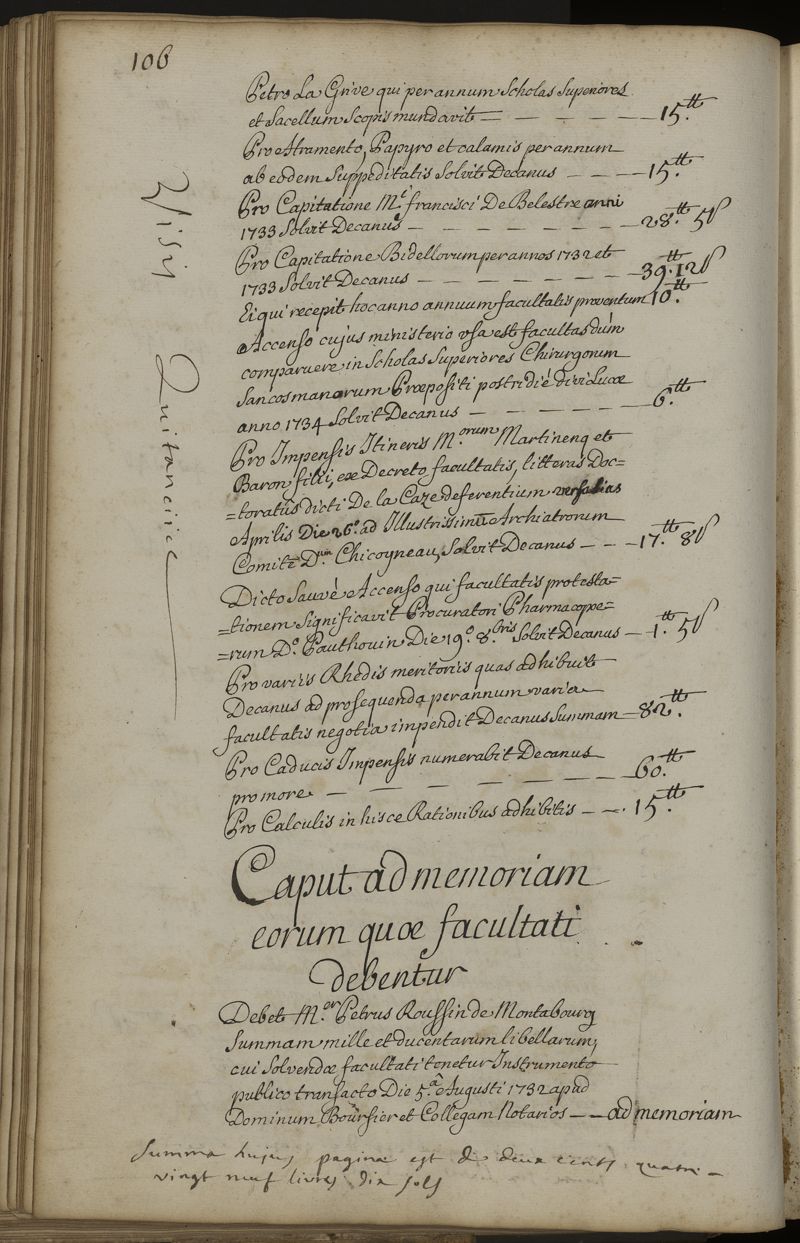 106
Petro La Grive qui per annum Scholas Superiores
et Sacellum Scopis mundavit — — — — — 15.tt
Pro Atramento, Papyro et calamis per annum
ab eodem Suppeditatis Solvit Decanus — — — 15.tt
Pro Capitatione M.i francisci De Belestre anni
1733 Solvit Decanus — — — — — — — 28.tt 5s
Pro Capitatione Bidellorum per annos 1732 et
1733 Solvit Decanus — — — — — — — 39.tt 12s
Ei qui recepit hoc anno annuum facultatis proventum 10.tt
Accenso cujus ministerio usa est facultas dum
comparuere in Scholas Superiores Chirurgorum
Sancosmanorum Præpositi postridie divi Lucæ
anno 1734 Solvit Decanus — — — — — — 6.tt
Pro Impensis Itineris M.orum Martinenq et
Baron filii, ex Decreto facultatis, litteras Doc=
=toratûs dicti De la Caze deferentium Versalias
Aprilis Die 26.a ad Illustrissimū Archiatrorum
Comitē D.um Chicoyneau, Solvit Decanus — — — 17.tt 8s
Dicto Sauvé Accenso qui facultatis protesta=
=tionem Significavit Procuratori Pharmacopœ=
=rum D.o Pauthouin Die 19.a 8.bris Solvit Decanus — 1.tt 5s
Pro variis Rhedis meritoriis quas adhibuit
Decanus ad prosequenda per annum varia
facultatis negotia impendit Decanus Summam — 82.tt
Pro Caducis Impensis numerabit Decanus
pro more — — — — — — — — — 60.tt
Pro Calculis in hisce Rationibus adhibitis — — . 15.tt
Visy
Quitanciæ
Caput ad memoriam
eorum quæ facultati
debentur
Debet M.er Petrus Roussin de Montabourg
Summam mille et ducentarum libellarum,
cui Solvendæ facultati tenetur Instrumento
publico transacto Die 5.a Augusti 1732 apud
Dominum Boursier et Collegam Notarios — — ad memoriam
Summa hujus paginæ est de deux cents quatre
vingt neuf livres dix sols